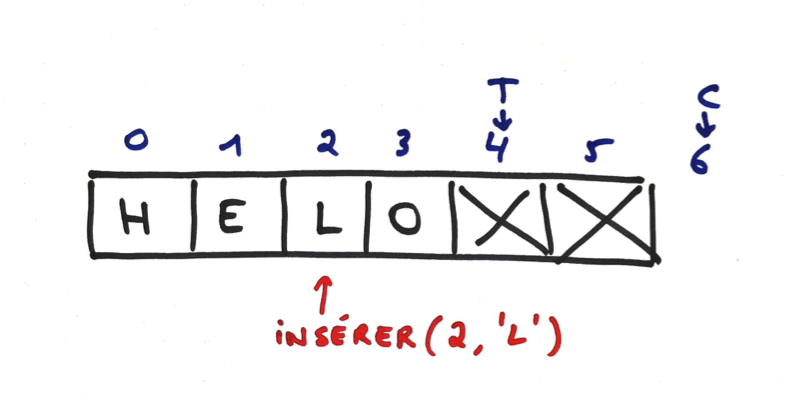 T C
0 1 2 3 4 5 6
H E L O
INSÉRER(2, 'L')